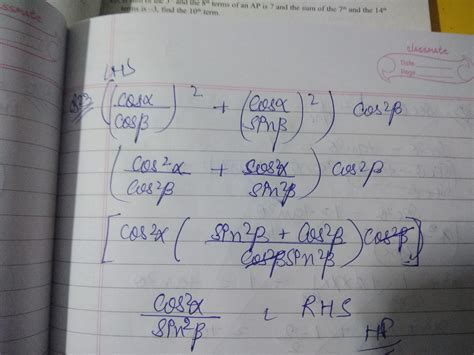 sum of the 3rd and the 8th terms of an AP is 7 and the sum of the 7th and the 14th
terms is –3, find the 10th term.
classmate
Date
Page
LHS
((cosα/cosβ)² + (cosα/sinβ)²) cos²β
(cos²α/cos²β + cos²α/sin²β) cos²β
[cos²α (sin²β + cos²β / cos²β sin²β) cos²β]
cos²α/sin²β = RHS
HP